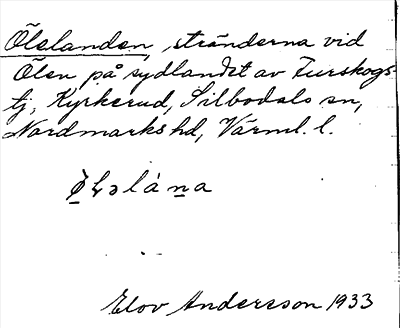 Ölelanden, stränderna vid
Ölen på sydlandet av Furskogs-
tj, Kyrkerud, Silbodals sn,
Nordmarks hd, Värml. l.
Elov Andersson 1933